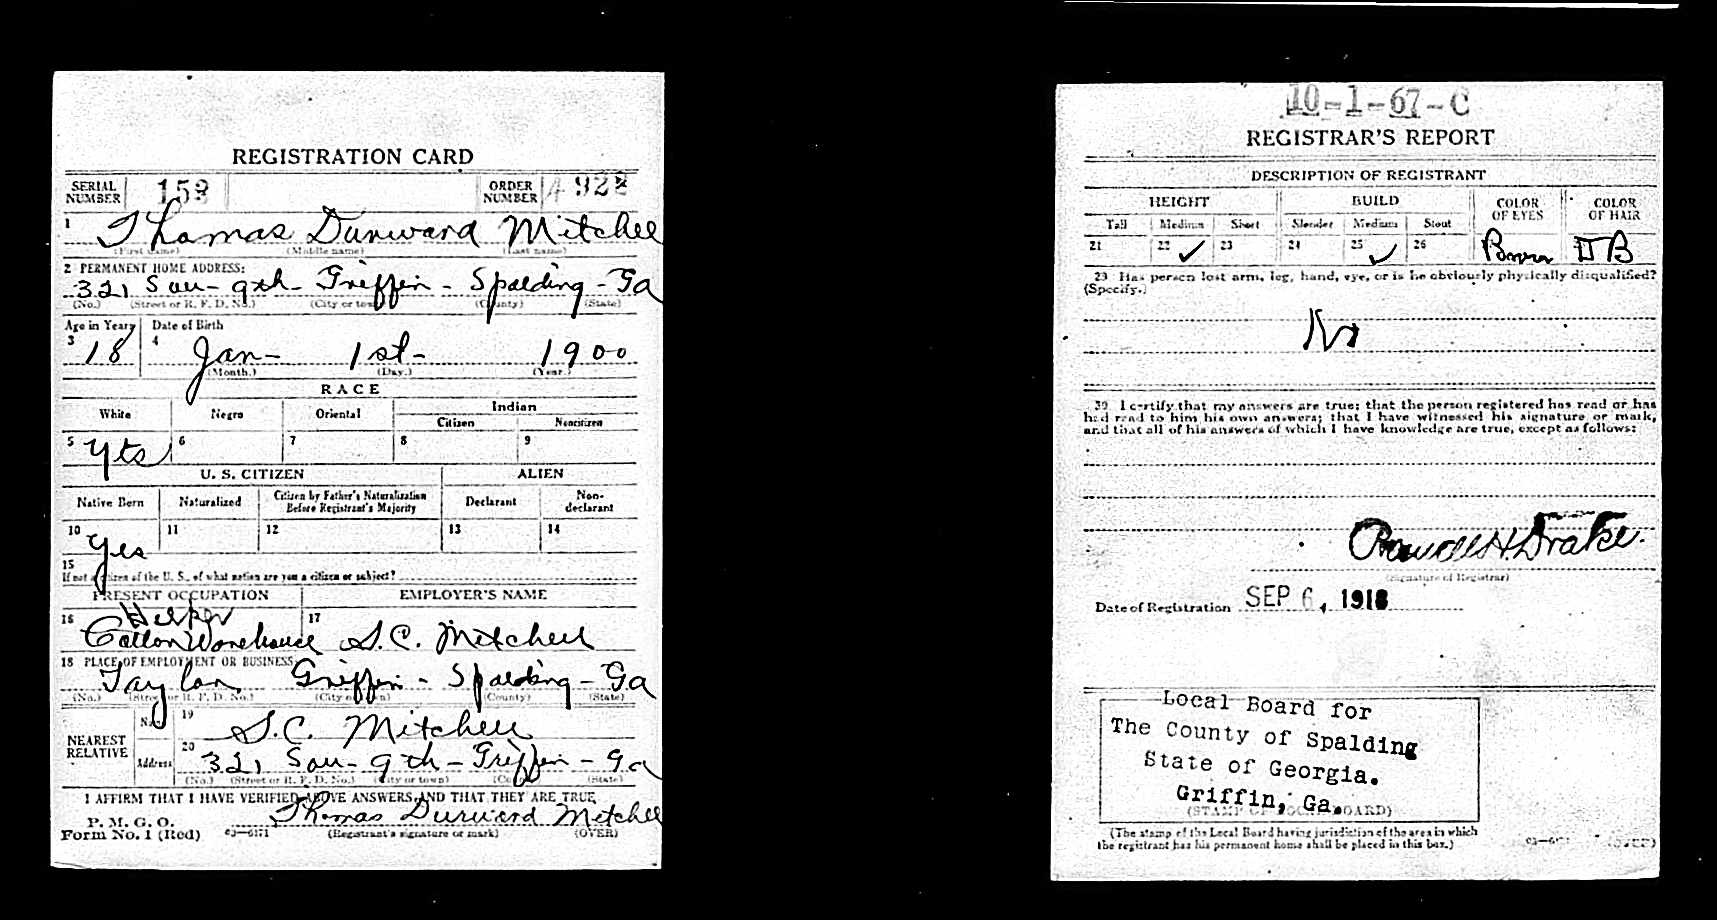 REGISTRATION CARD
SERIAL NUMBER 158 ORDER NUMBER A 922
1 Thomas Durward Mitchell
(First name) (Middle name) (Last name)
2 PERMANENT HOME ADDRESS:
321 Sou- 9th- Griffin - Spalding - Ga
(No.) (Street or R. F. D. No.) (City or town) (County) (State)
Age in Years Date of Birth
3 18 4 Jan- 1st- 1900
(Month.) (Day.) (Year.)
RACE
White Negro Oriental Indian
Citizen Noncitizen
5 Yes 6 7 8 9
U. S. CITIZEN ALIEN
Native Born Naturalized Citizen by Father's Naturalization Before Registrant's Majority Declarant Non-declarant
10 Yes 11 12 13 14
15
If not a citizen of the U. S., of what nation are you a citizen or subject?
PRESENT OCCUPATION EMPLOYER'S NAME
Helper
16 Cotton Warehouse 17 S.C. Mitchell
18 PLACE OF EMPLOYMENT OR BUSINESS:
Taylor Griffin - Spalding - Ga
(No.) (Street or R. F. D. No.) (City or town) (County) (State)
NEAREST RELATIVE
Name 19 S.C. Mitchell
Address 20 321 Sou- 9th - Griffin - Ga
(No.) (Street or R. F. D. No.) (City or town) (County) (State)
I AFFIRM THAT I HAVE VERIFIED ABOVE ANSWERS AND THAT THEY ARE TRUE
P. M. G. O.
Form No. 1 (Red) 03—6171 Thomas Durward Mitchell
(Registrant's signature or mark) (OVER)
10-1-67-C
REGISTRAR'S REPORT
DESCRIPTION OF REGISTRANT
HEIGHT BUILD COLOR OF EYES COLOR OF HAIR
Tall Medium Short Slender Medium Stout
21 22 ✓ 23 24 25 ✓ 26 Brown DB
29 Has person lost arm, leg, hand, eye, or is he obviously physically disqualified?
(Specify.)
No
30 I certify that my answers are true; that the person registered has read or has
had read to him his own answers; that I have witnessed his signature or mark,
and that all of his answers of which I have knowledge are true, except as follows:
H. Drake.
(Signature of Registrar)
Date of Registration SEP 6, 1918
Local Board for
The County of Spalding
State of Georgia.
Griffin, Ga.
(STAMP OF LOCAL BOARD)
(The stamp of the Local Board having jurisdiction of the area in which
the registrant has his permanent home shall be placed in this box.)
(OVER)